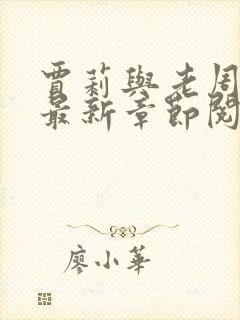 賈莉與老周
最新章節閱
廖小華